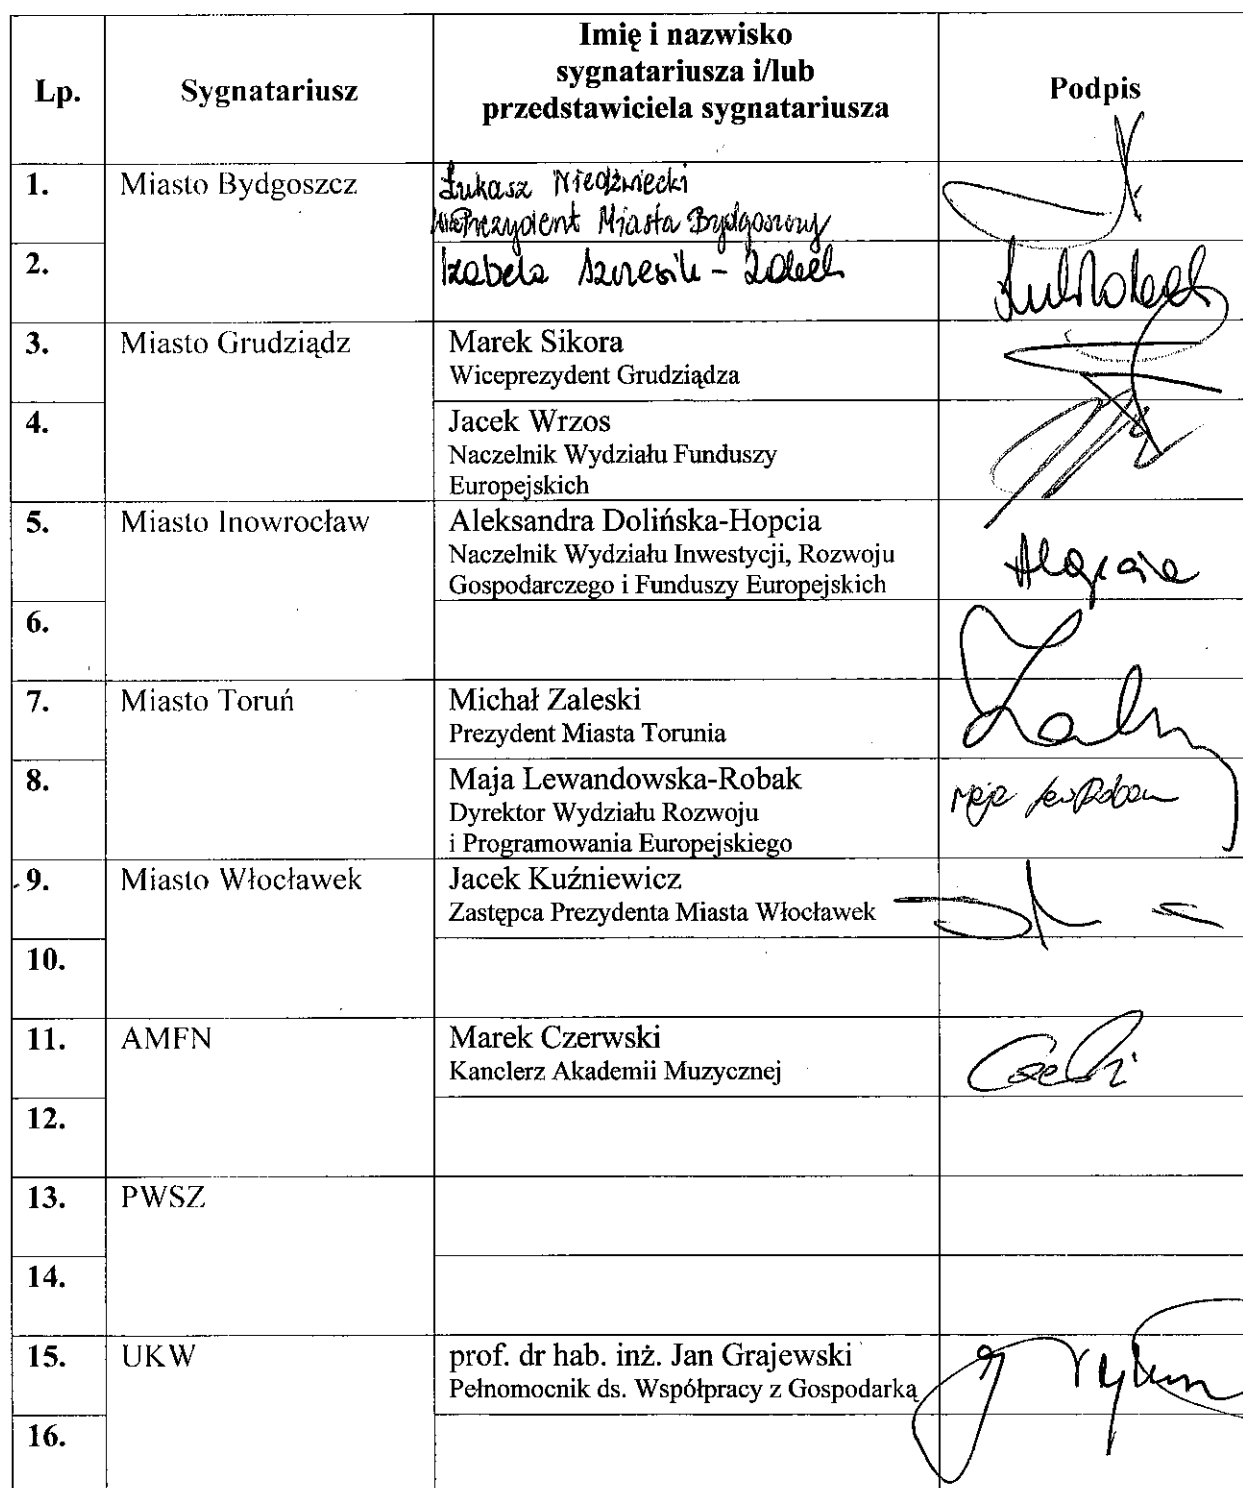 Lp.
Sygnatariusz
Imię i nazwisko
sygnatariusza i/lub
przedstawiciela sygnatariusza
Podpis
1.
Miasto Bydgoszcz
Łukasz Niedźwiecki
WicePrezydent Miasta Bydgoszczy
2.
Izabela
3.
Miasto Grudziądz
Marek Sikora
Wiceprezydent Grudziądza
4.
Jacek Wrzos
Naczelnik Wydziału Funduszy
Europejskich
5.
Miasto Inowrocław
Aleksandra Dolińska-Hopcia
Naczelnik Wydziału Inwestycji, Rozwoju
Gospodarczego i Funduszy Europejskich
6.
7.
Miasto Toruń
Michał Zaleski
Prezydent Miasta Torunia
8.
Maja Lewandowska-Robak
Dyrektor Wydziału Rozwoju
i Programowania Europejskiego
9.
Miasto Włocławek
Jacek Kuźniewicz
Zastępca Prezydenta Miasta Włocławek
10.
11.
AMFN
Marek Czerwski
Kanclerz Akademii Muzycznej
12.
13.
PWSZ
14.
15.
UKW
prof. dr hab. inż. Jan Grajewski
Pełnomocnik ds. Współpracy z Gospodarką
16.